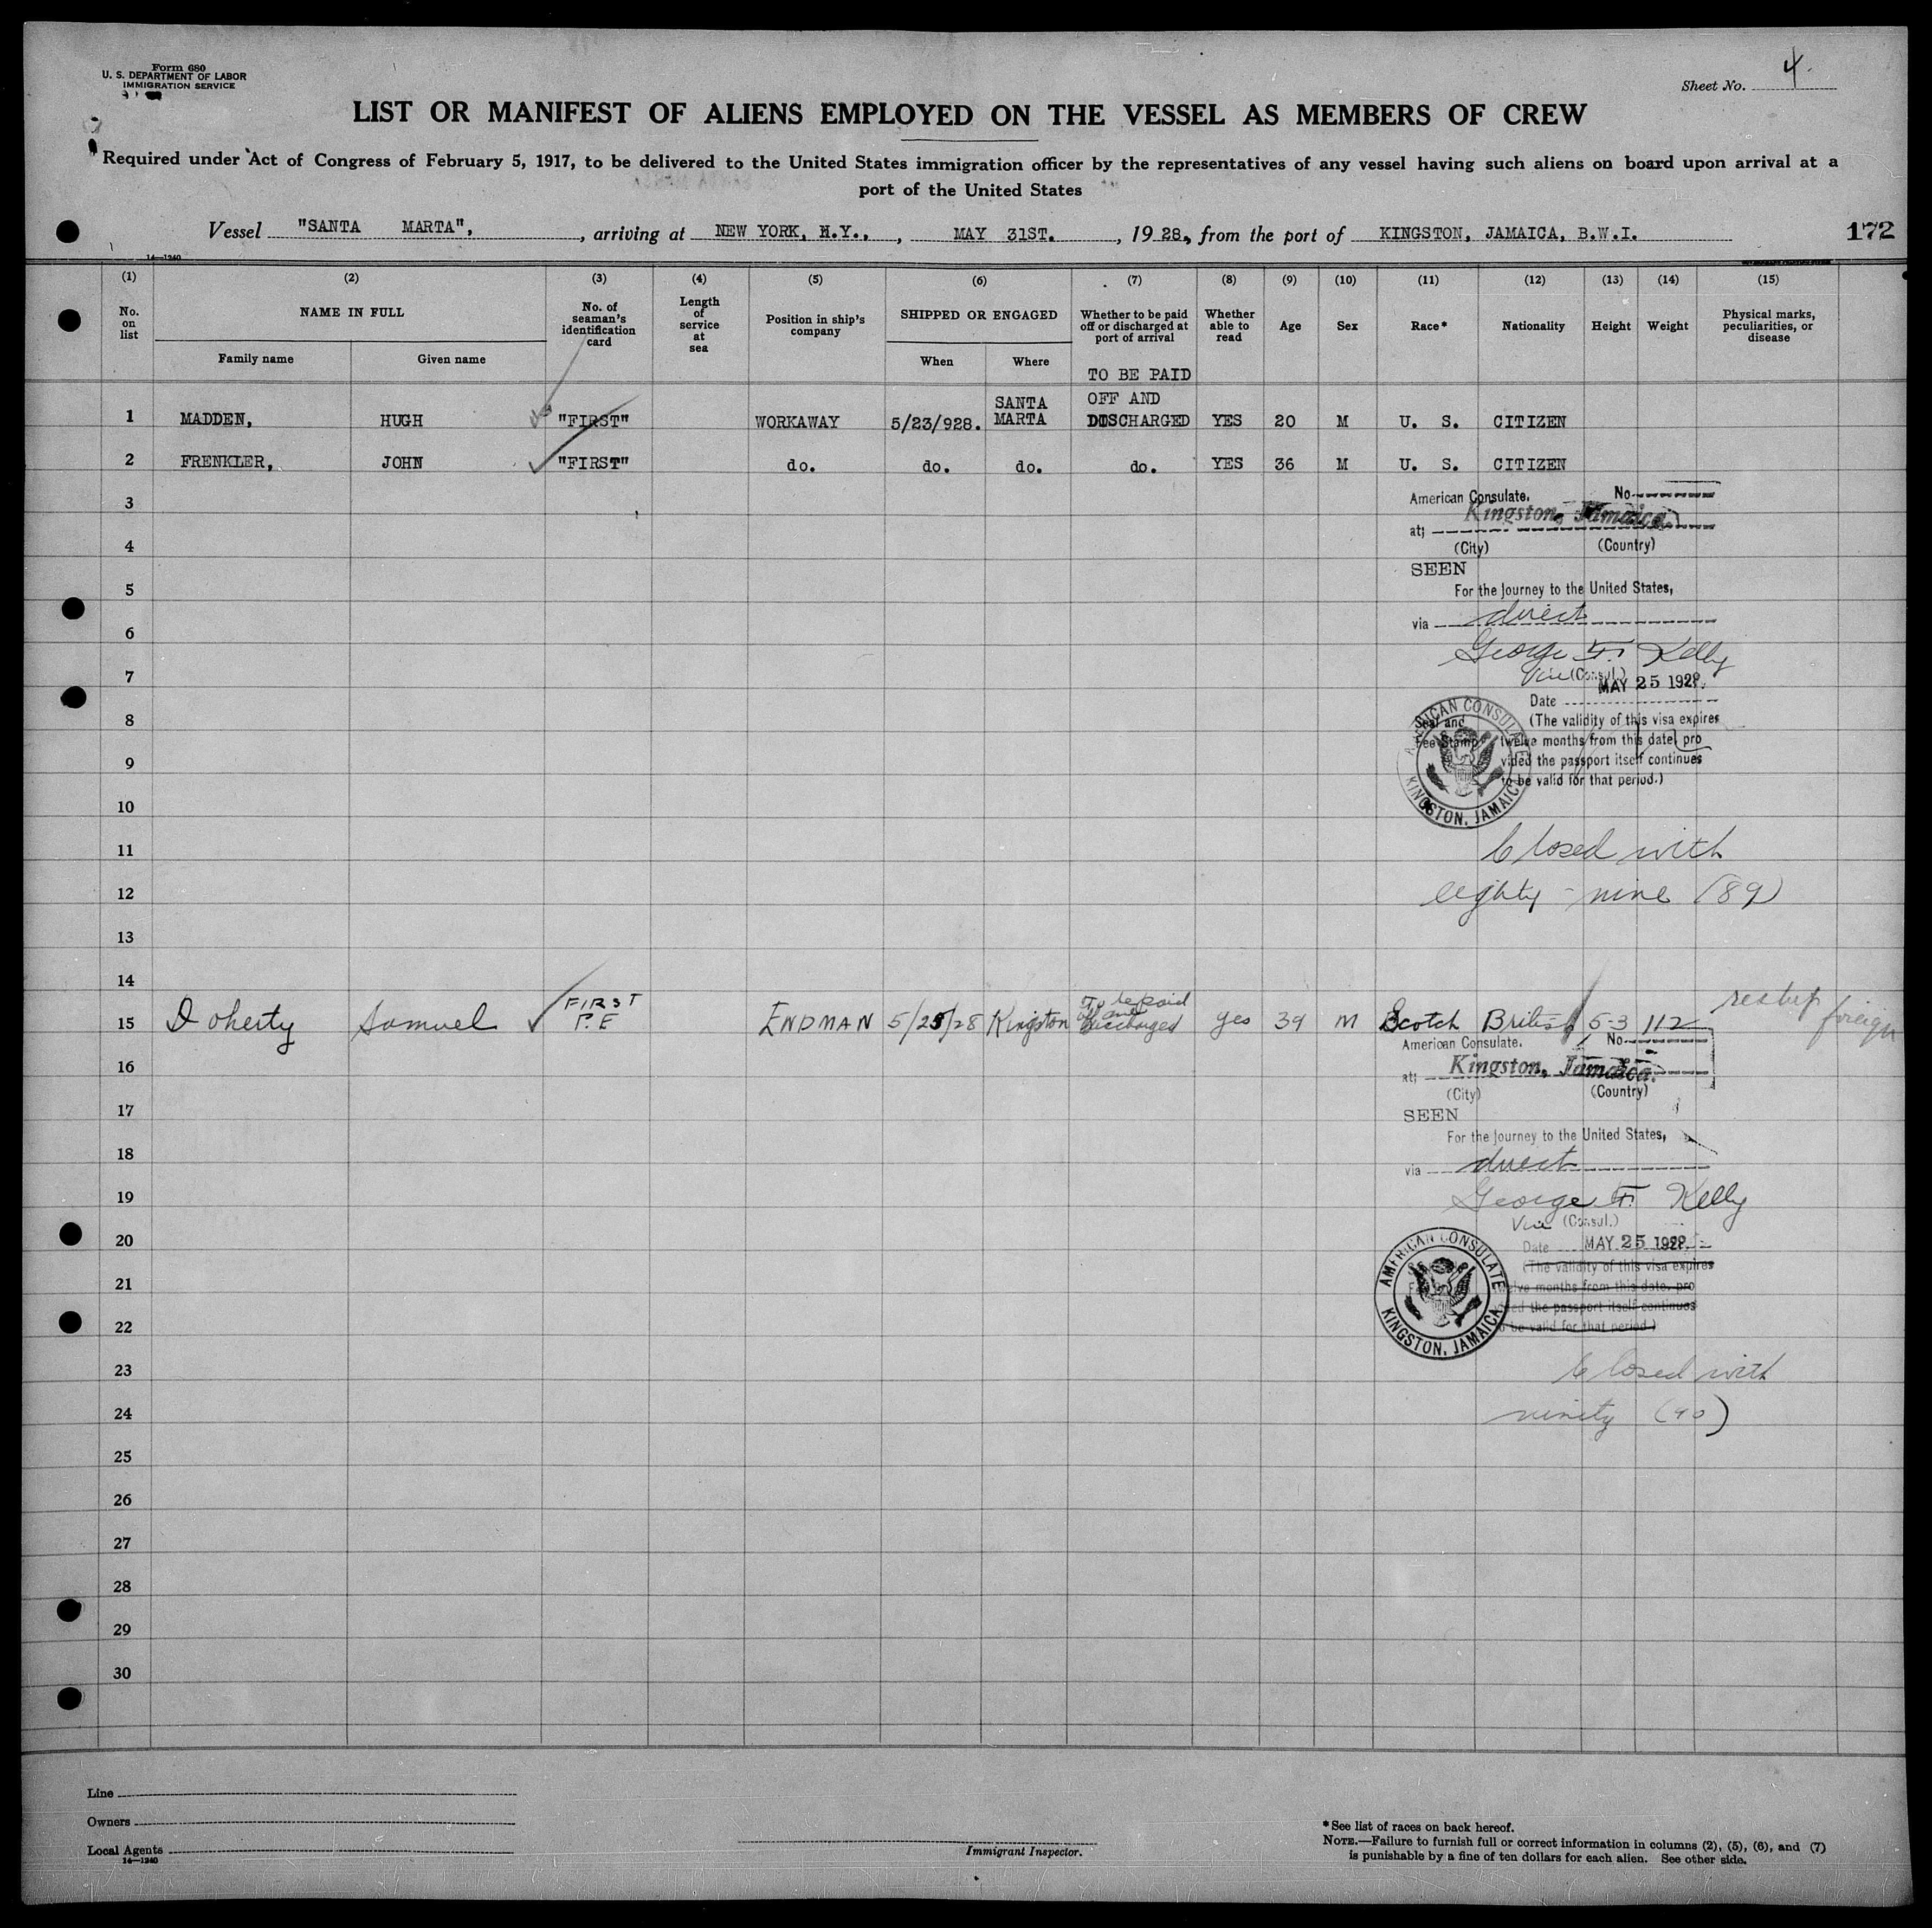 Form 680
U. S. DEPARTMENT OF LABOR
IMMIGRATION SERVICE
Sheet No. 4.
LIST OR MANIFEST OF ALIENS EMPLOYED ON THE VESSEL AS MEMBERS OF CREW
Required under Act of Congress of February 5, 1917, to be delivered to the United States immigration officer by the representatives of any vessel having such aliens on board upon arrival at a
port of the United States
Vessel "SANTA MARTA", , arriving at NEW YORK, N.Y., , MAY 31ST. , 19 28, from the port of KINGSTON, JAMAICA, B.W.I. 172
14—1240
(1) (2) (3) (4) (5) (6) (7) (8) (9) (10) (11) (12) (13) (14) (15)
No. on list
NAME IN FULL
Family name
Given name
No. of seaman's identification card
Length of service at sea
Position in ship's company
SHIPPED OR ENGAGED
When
Where
Whether to be paid off or discharged at port of arrival
Whether able to read
Age
Sex
Race*
Nationality
Height
Weight
Physical marks, peculiarities, or disease
TO BE PAID
OFF AND
1 MADDEN, HUGH "FIRST" WORKAWAY 5/23/928. SANTA MARTA DISCHARGED YES 20 M U. S. CITIZEN
2 FRENKLER, JOHN "FIRST" do. do. do. do. YES 36 M U. S. CITIZEN
3
American Consulate. No
Kingston, Jamaica.
at;
4
(City) (Country)
SEEN
5
For the Journey to the United States,
via direct
6
George F. Kelly
7
Vice (Consul.)
MAY 25 1928.
Date
8
Seal and
Fee Stamp
(The validity of this visa expires
twelve months from this date, pro
9
vided the passport itself continues
to be valid for that period.)
AMERICAN CONSULATE
KINGSTON, JAMAICA
10
11
Closed with
12
eighty-nine (89)
13
14
15 Doherty Samuel FIRST P.E ENDMAN 5/25/28 Kingston To be paid off and discharged yes 39 M Scotch British 5-3 112 reship foreign
American Consulate. No
16
at; Kingston, Jamaica.
(City) (Country)
17
SEEN
For the Journey to the United States,
18
via direct
19
George F. Kelly
Vice (Consul.)
20
Date MAY 25 1928.
(The validity of this visa expires
21
twelve months from this date, pro
vided the passport itself continues
22
to be valid for that period.)
AMERICAN CONSULATE
KINGSTON, JAMAICA
23
Closed with
24
ninety (90)
25
26
27
28
29
30
Line
Owners
Local Agents
14—1240
Immigrant Inspector.
*See list of races on back hereof.
NOTE.—Failure to furnish full or correct information in columns (2), (5), (6), and (7)
is punishable by a fine of ten dollars for each alien. See other side.